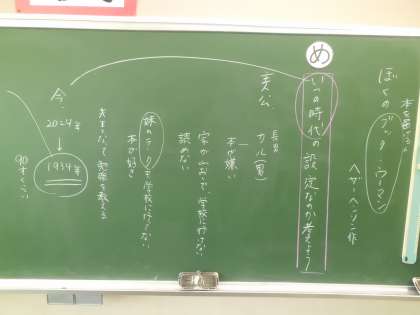 本を選ぼう
ぼくのブック・ウーマン
ヘザー・ヘンソン作
め
いつの時代の設定なのか考えよう
主人公
長男
カル(男)
本が嫌い
家が山おくで、学校に行けない
読めない
妹のラーク
も学校に行ってない
本が好き
先生になって家族を教える
今
2024年
1934年
90才くらい